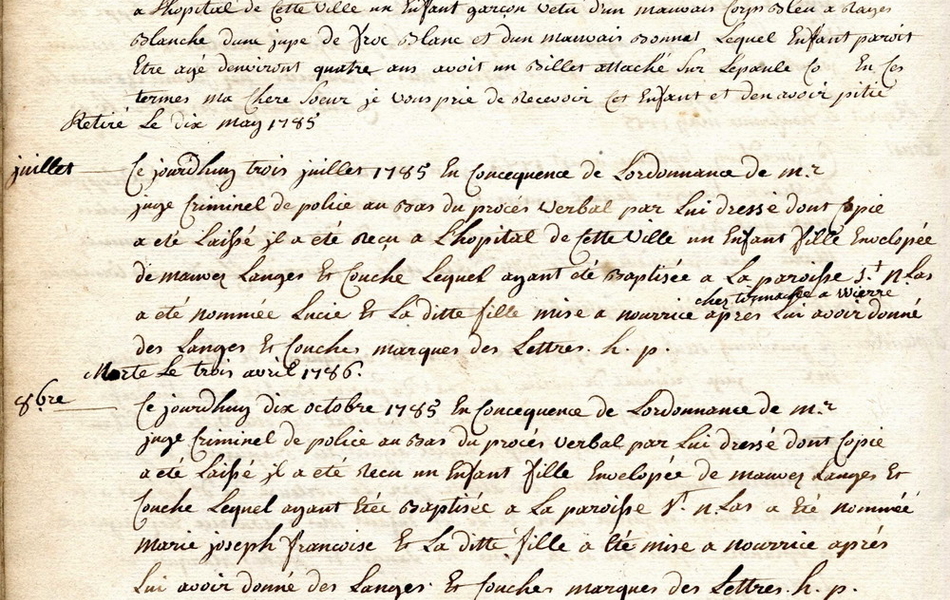 a Lhopital de Cette Ville un Enfant garçon vetu dun mauvais Corps Bleu a Rayes
Blanche dune jupe de froc Blanc et dun mauvais Bonnet Lequel Enfant paroit
Etre agé denviront quatre ans avoit un Billet attaché Sur Lepaule En Ces
termes ma Chere Soeur je vous prie de Recevoir Cet Enfant et den avoir pitié
Retiré Le dix may 1785
juillet Ce jourdhuy trois juillet 1785 En Concequence de Lordonnance de m.r
juge Criminel de police au Bas du procés verbal par Lui dressé dont Copie
a eté Laissé jl a eté Recu a Lhopital de Cette Ville un Enfant fille Envelopée
de mauvez Langes Et Couche Lequel ayant eté Baptisée a La paroisse S.t nLas
chez a Wierre
a été nommée Lucie Et La ditte fille mise a nourrice apres Lui avoir donné
des Langes Et Couches marques des Lettres. h. p.
Morte Le trois avril 1786.
8bre Ce jourdhuy dix octobre 1785 En Concequence de Lordonnance de m.r
juge Criminel de police au Bas du procés verbal par Lui dressé dont Copie
a eté Laissé jl a eté Recu un Enfant fille Envelopée de mauvez Langes Et
Couche Lequel ayant Etée Baptisée a La paroisse S.t n.Las a Eté nommée
Marie joseph francoise Et La ditte fille a Eté mise a nourrice aprés
Lui avoir donné des Langes Et Couches marques des Lettres. h. p.